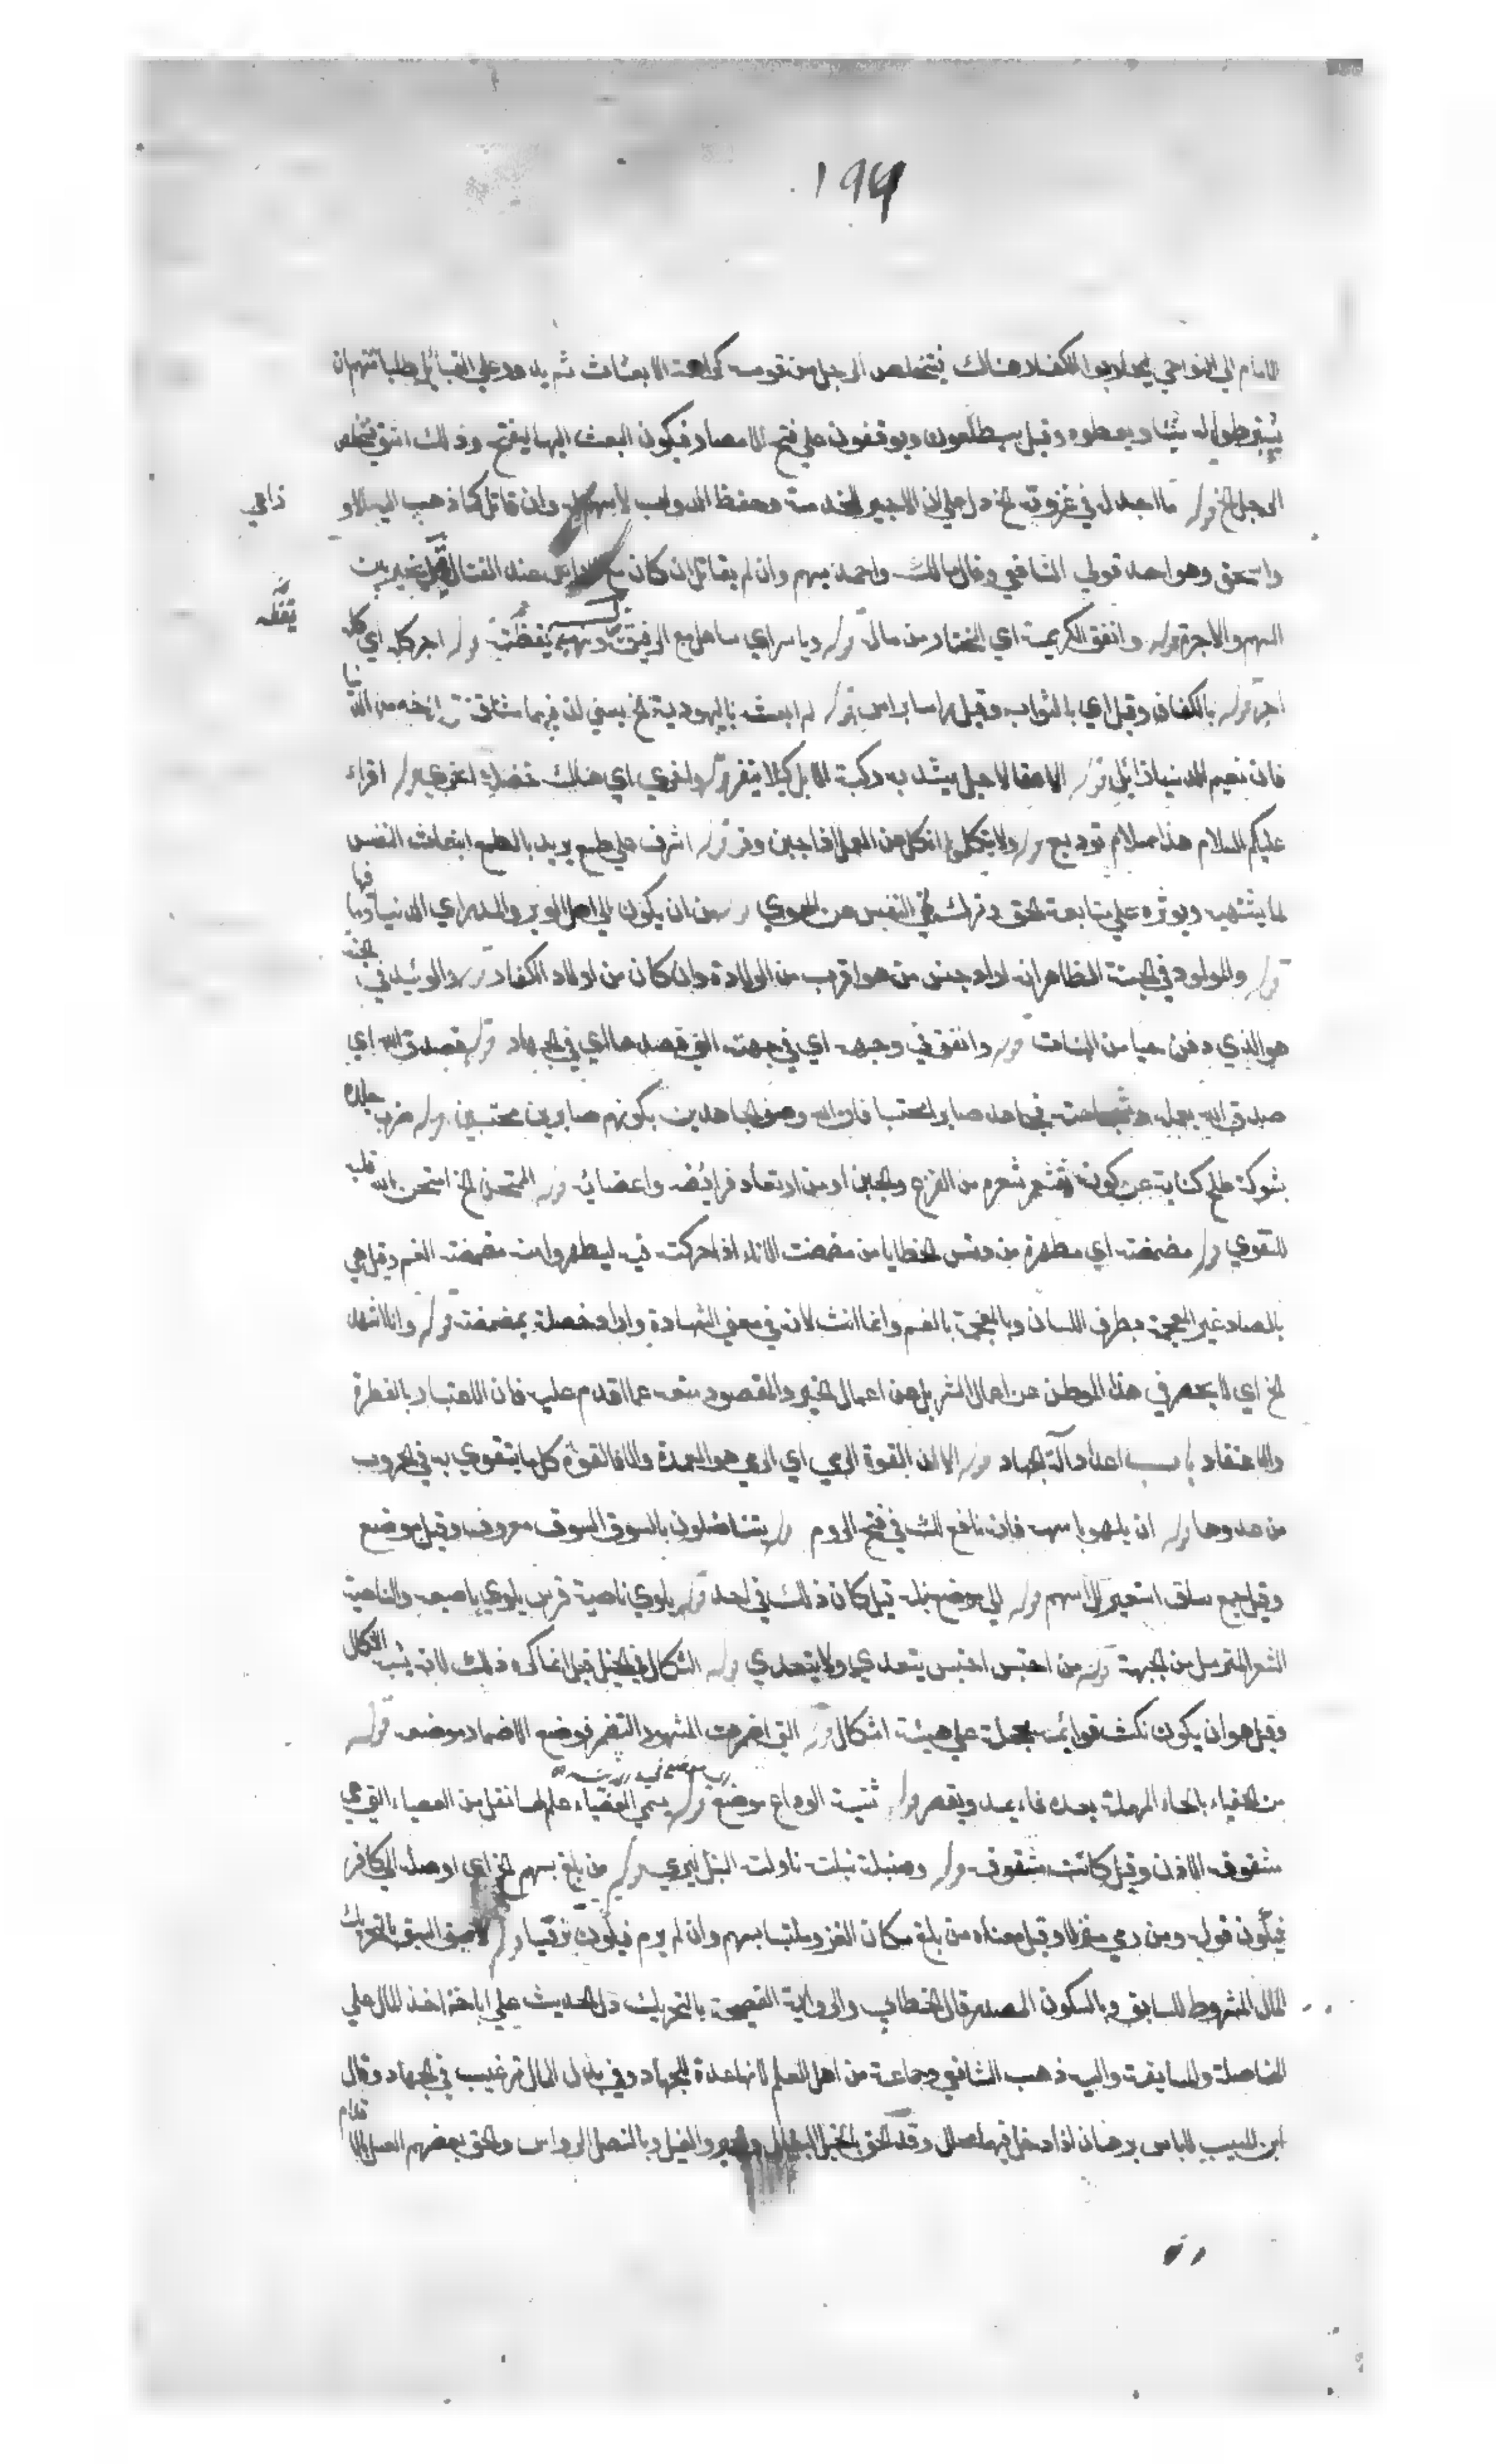 ١٩٩
الامام الي النواحي ليحاربوا الكفار هناك فيتخلص الرجل من قومه كراهة الانبعاث ثم يدور علي القبائل طلبا منهم ان
يشترطوا له شيئا ويعطوه وقيل سيطلعون ويوقفون علي فتح الامصار فيكون البعث اليها ليفتح وذلك
الرجل الخ قوله ما اجد له في غزوته الخ دل علي ان الاجير للخدمة وحفظ الدواب لا سهم له وان قاتل كما ذهب اليه الاو
زاعي
واسحق وهو احد قولي الشافعي وقال مالك واحمد يسهم وان لم يقاتل ان كان مع الناس عند القتال وقيل يخير بين
السهم والاجرة قوله وانفق الكريمة اي المختار من ماله قوله وياسر اي ساهل مع الرفيق ونبهه يقظته قوله اجر كله اي كل
يقظه
اجر قوله بالكفاف وقيل اي بالثواب وقيل راسا براس قوله لم ابعث باليهودية الخ يعني لان فيهما مشاق
فان نعيم الدنيا زائل قوله الا عقالا حبل يشد به ركبة الابل كيلا ينفر قوله واخري اي هناك خصلة اخري قوله اقراء
عليكم السلام هذا سلام توديع قوله ولا يتكلوا اتكل عن العمل اذا جبن وفر قوله اشرف علي طمع يريد بالطمع انبعاث النفس
لما يشتهيه ويوثره علي متابعة الحق وترك نهي النفس عن الهوي قوله من ان يكون لي اهل الوبر والمدر اي الدنيا وما فيها
قوله والمولود في الجنة الظاهر انه اراد جنس من هو اقرب من الولادة وان كان من اولاد الكفار قوله والوئيد في الجنة
هو الذي دفن حيا من البنات قوله وانفق في وجهه اي في جهته التي قصدها اي في الجهاد قوله فصدق الله اي
صدق الله بعمله وشجاعته فجاهد صابرا محتسبا فان الله وصف المجاهدين بكونهم صابرين محتسبين قوله ضرب جلده
بشوكة طلح كناية عن كونه يقشعر شعره من الفزع والجبن او من ارتعاد فرائضه واعضائه قوله الممتحن الخ امتحن الله قلبه
للتقوي قوله مضمضة اي مطهرة من دنس الخطايا من مضمضت الاناء اذا حركت فيه ليطهر وانت مضمضة الفم وقيل هي
بالصاد غير المعجمة بطرف اللسان وبالمعجمة بالفم وانما انث لانه في معني الشهادة واراد خصلة بمضمضة قوله وانا اشهد
الخ اي لا يحصر في هذا الموطن عن اعمال الشر بل عن اعمال الخير والمقصود منعه عما اقدم عليه فان الاعتبار بالفطرة
والاعتقاد باب اعداد آلة الجهاد قوله الا ان القوة الرمي اي الرمي هو العمدة والا فالقوة كل ما يتقوي به في الحروب
من عدوها قوله ان يلهو باسهمه فانه نافع لك في فتح الروم قوله يتناضلون بالسوق السوق معروف وقيل موضع
وقيل جمع ساق استعير للاسهم قوله الي موضع نبله قيل كان ذلك في احد قوله يلوي ناصية فرس يلوي باصبعه والناصية
الشعر المترسل من الجبهة قوله من احتبس احتبس يتعدي ولا يتعدي قوله الشكال في الخيل قيل انما كره ذلك لانه يشبه الشكال
وقيل هو ان يكون ثلث قوائمه محجلة علي هيئة الشكال قوله التي اضمرت المشهور التضمر فوضع الاضمار موضعه قوله
من الحفياء بالحاء المهملة بعده فاء يمد ويقصر قوله ثنية الوداع موضع قوله يسمي العضباء علم لها نقل من العضباء التي هي
مشقوقة الاذن وقيل كانت مشقوقة قوله ومنبله نبلت ناولت النبل ليرمي قوله من بلغ بسهم الخ اي اوصله الي كافر
فيكون قوله ومن رمي منزلا وقيل معناه من بلغ مكان الغزو ملتبسا بسهم وان لم يرم فيكون ترقيا قوله لا سبق السبق بالتحريك
المال المشروط للسابق وبالسكون المصدر قال الخطابي والرواية الفصيحة بالتحريك دل الحديث علي اباحة اخذ المال علي
المناضلة والمسابقة واليه ذهب الشافعي وجماعة من اهل العلم لانها عدة للجهاد وفي بذل المال ترغيب في الجهاد وقال
ابن المسيب لا باس برهان اذا دخل فيها محلل وقد الحق بالخيل البغال والحمير والفيل وبالنصل الرواس والحق بعضهم